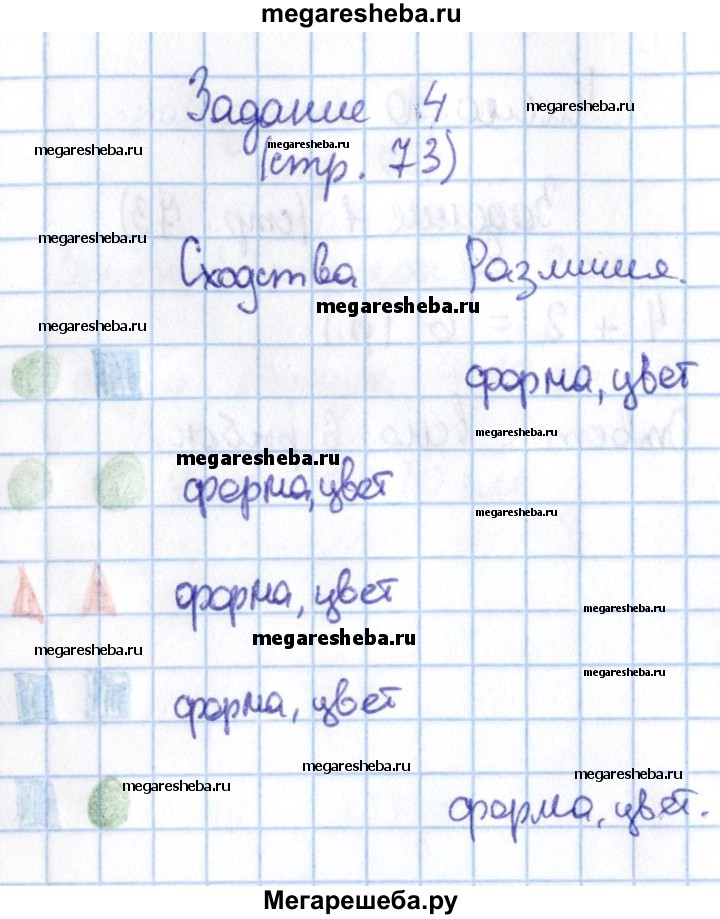 megaresheba.ru
Задание 4
megaresheba.ru
megaresheba.ru
megaresheba.ru
(стр. 73)
megaresheba.ru
Сходства Различия.
megaresheba.ru
megaresheba.ru
форма, цвет
megaresheba.ru
megaresheba.ru
форма, цвет
megaresheba.ru
форма, цвет
megaresheba.ru
megaresheba.ru
megaresheba.ru
megaresheba.ru
форма, цвет
megaresheba.ru
megaresheba.ru
megaresheba.ru
форма, цвет.
Мегарешеба.ру